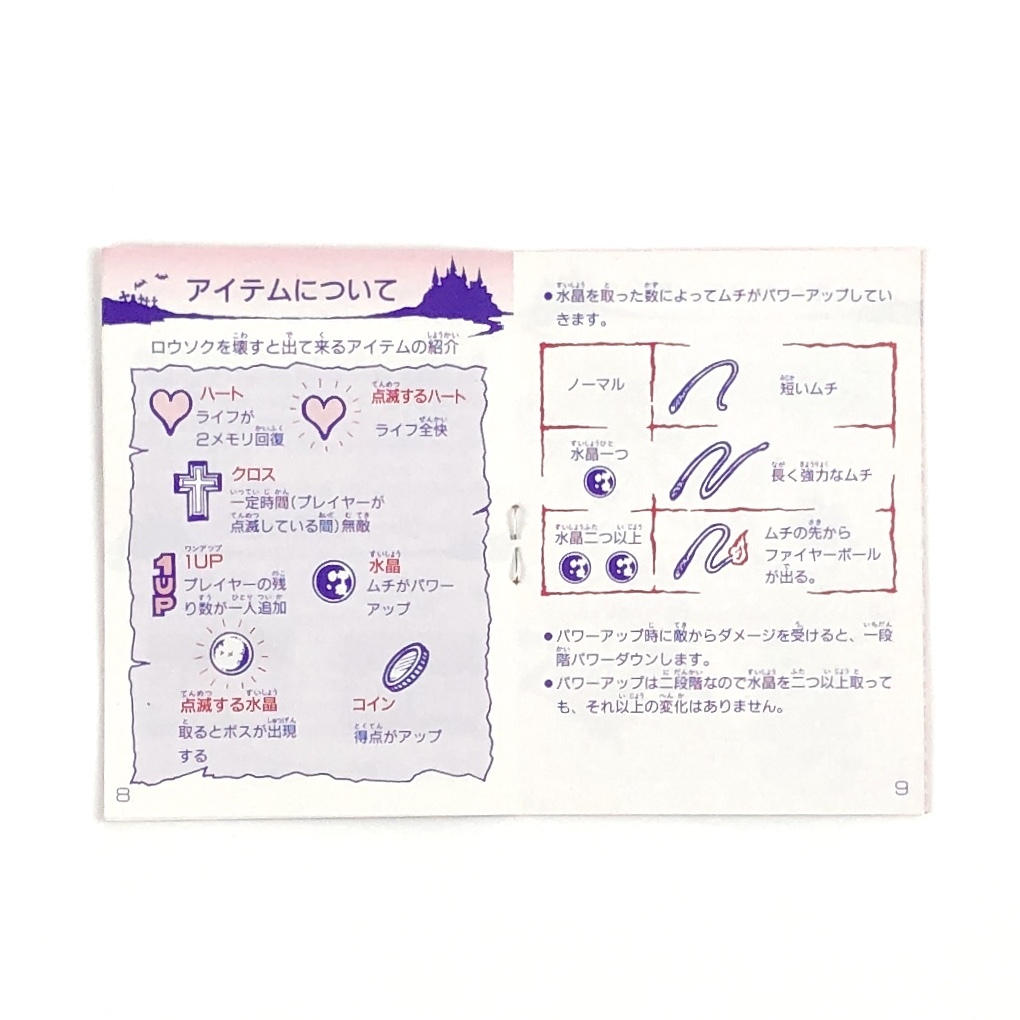 アイテムについて
ロウソクを壊すと出て来るアイテムの紹介
ハート
ライフが
2メモリ回復
点滅するハート
ライフ全快
クロス
一定時間(プレイヤーが
点滅している間)無敵
1UP
1UP
プレイヤーの残
り数が一人追加
水晶
ムチがパワー
アップ
点滅する水晶
取るとボスが出現
する
コイン
得点がアップ
8
●水晶を取った数によってムチがパワーアップしてい
きます。
ノーマル
短いムチ
水晶一つ
長く強力なムチ
水晶二つ以上
ムチの先から
ファイヤーボール
が出る。
●パワーアップ時に敵からダメージを受けると、一段
階パワーダウンします。
●パワーアップは二段階なので水晶を二つ以上取って
も、それ以上の変化はありません。
9